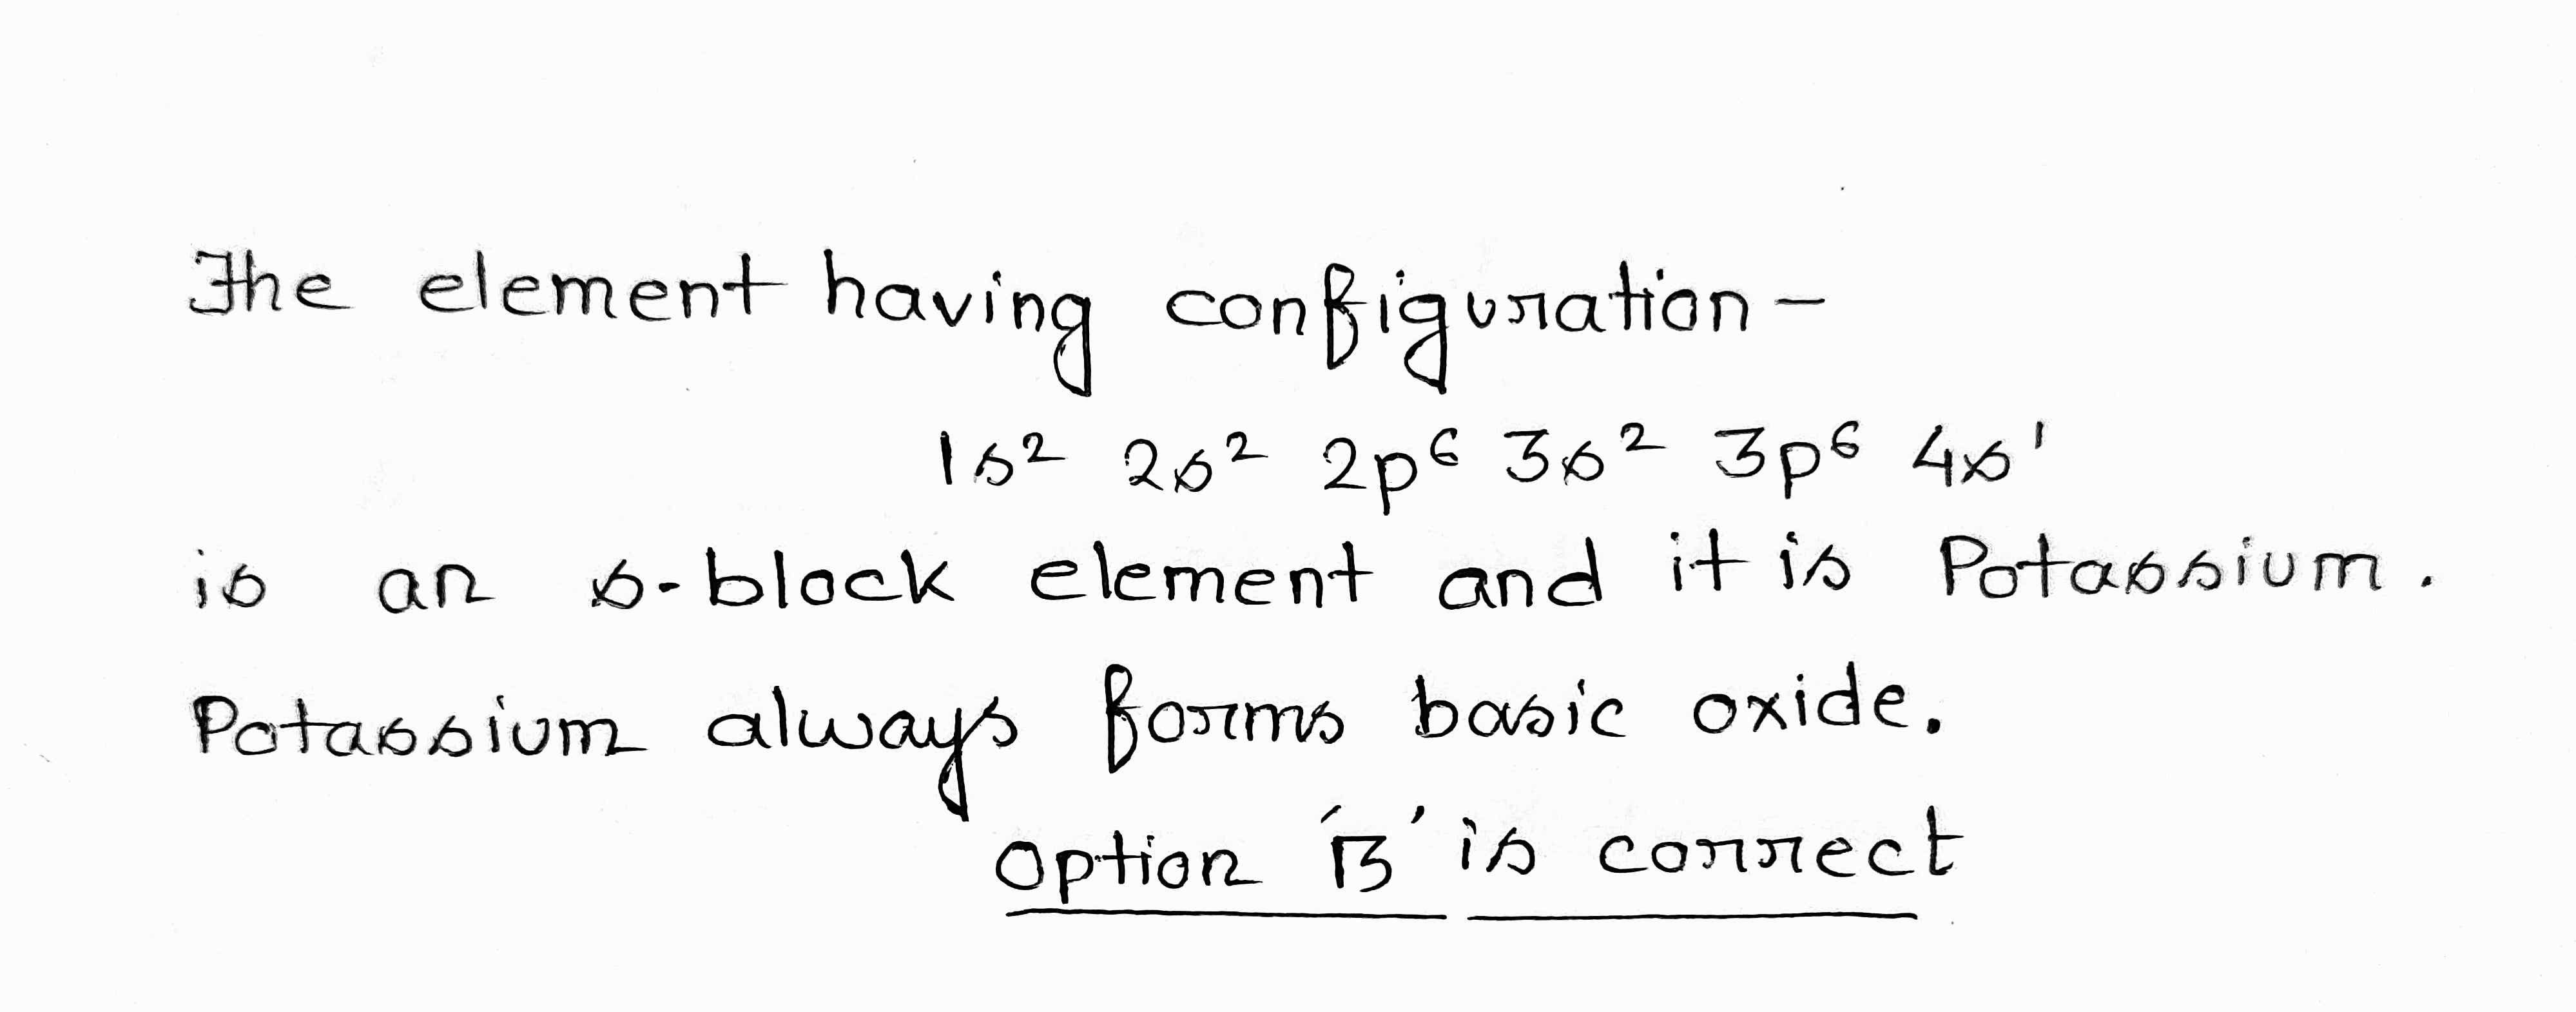 The element having configuration-
1s² 2s² 2p⁶ 3s² 3p⁶ 4s¹
is an s-block element and it is Potassium.
Potassium always forms basic oxide.
Option 'B' is correct